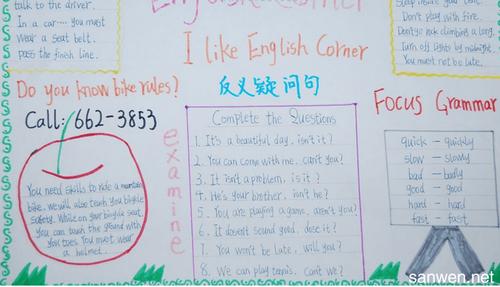 talk to the driver.
In a car.... you must
wear a seat belt.
pass the finish line.
Don't play with fire.
Don't go hik climbing along.
Turn off lights by midnight.
You must not be late.
I like English Corner
Do you know bike rules?
Call: 662-3853
You need skills to ride a mountain
bike. we will also teach you bicycle
safety. While on your bicycle seat,
you can touch the ground with
your toes. You must wear
a helmet.
examine
反义疑问句
Complete the Questions
1. It's a beautiful day, isn't it?
2. You can come with me, can't you?
3. It isn't a problem, is it?
4. He's your brother, isn't he?
5. You are playing a game, aren't you?
6. It doesn't sound good, dose it?
7. You won't be late, will you?
8. We can play tennis, can't we?
Focus Grammar
quick - quickly
slow - slowly
bad - badly
good - good
hard - hard
fast - fast
sanwen.net